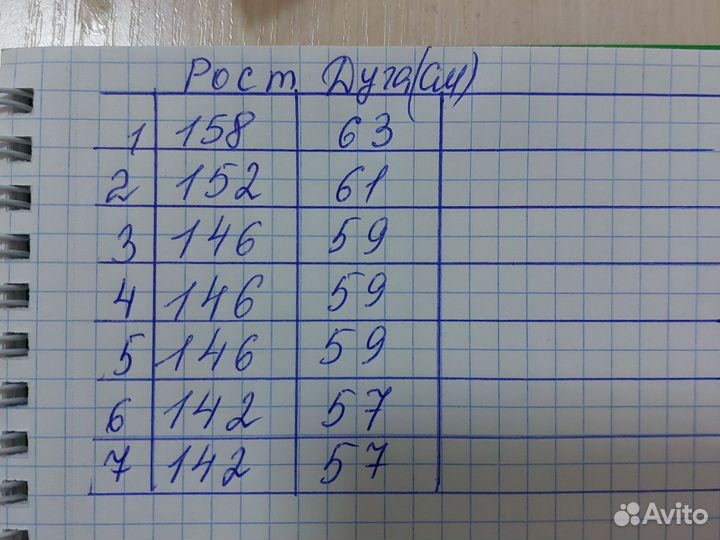 Рост Дуга(см)
1 158 63
2 152 61
3 146 59
4 146 59
5 146 59
6 142 57
7 142 57
Avito